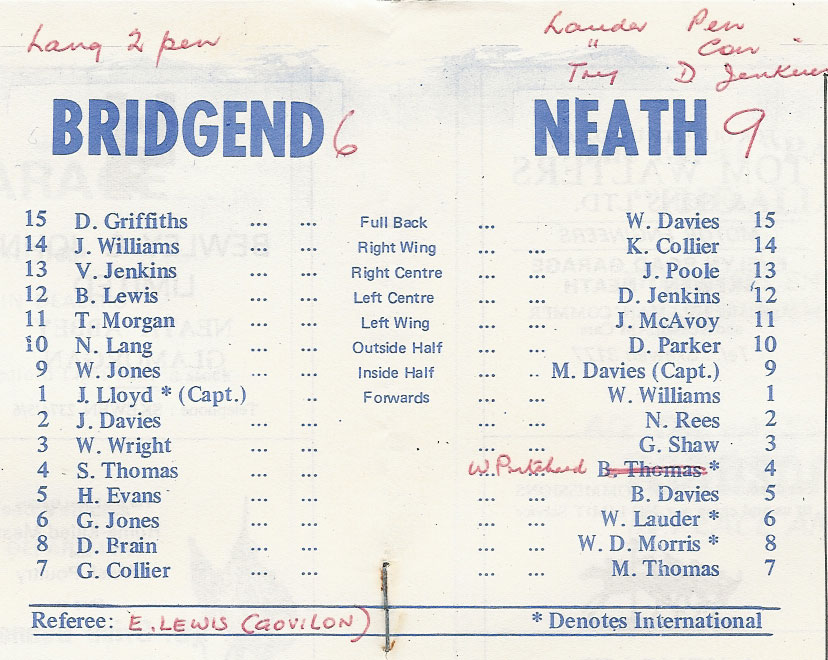 Lang 2 pen
Lauder Pen
" Con "
Try D Jenkins
BRIDGEND 6 NEATH 9
15 D. Griffiths ... ... Full Back ... W. Davies 15
14 J. Williams ... ... Right Wing ... ... K. Collier 14
13 V. Jenkins ... ... Right Centre ... ... J. Poole 13
12 B. Lewis ... ... Left Centre ... ... D. Jenkins 12
11 T. Morgan ... ... Left Wing ... ... J. McAvoy 11
10 N. Lang ... ... Outside Half ... ... D. Parker 10
9 W. Jones ... ... Inside Half ... .. M. Davies (Capt.) 9
1 J. Lloyd * (Capt.) .. Forwards ... ... W. Williams 1
2 J. Davies ... ... ... ... N. Rees 2
3 W. Wright ... ... ... ... G. Shaw 3
4 S. Thomas ... ... W. Pritchard B. Thomas * 4
5 H. Evans ... ... ... ... B. Davies 5
6 G. Jones ... ... ... ... W. Lauder * 6
8 D. Brain ... ... ... ... W. D. Morris * 8
7 G. Collier ... ... ... ... M. Thomas 7
Referee: E. LEWIS (GOVILON) * Denotes International